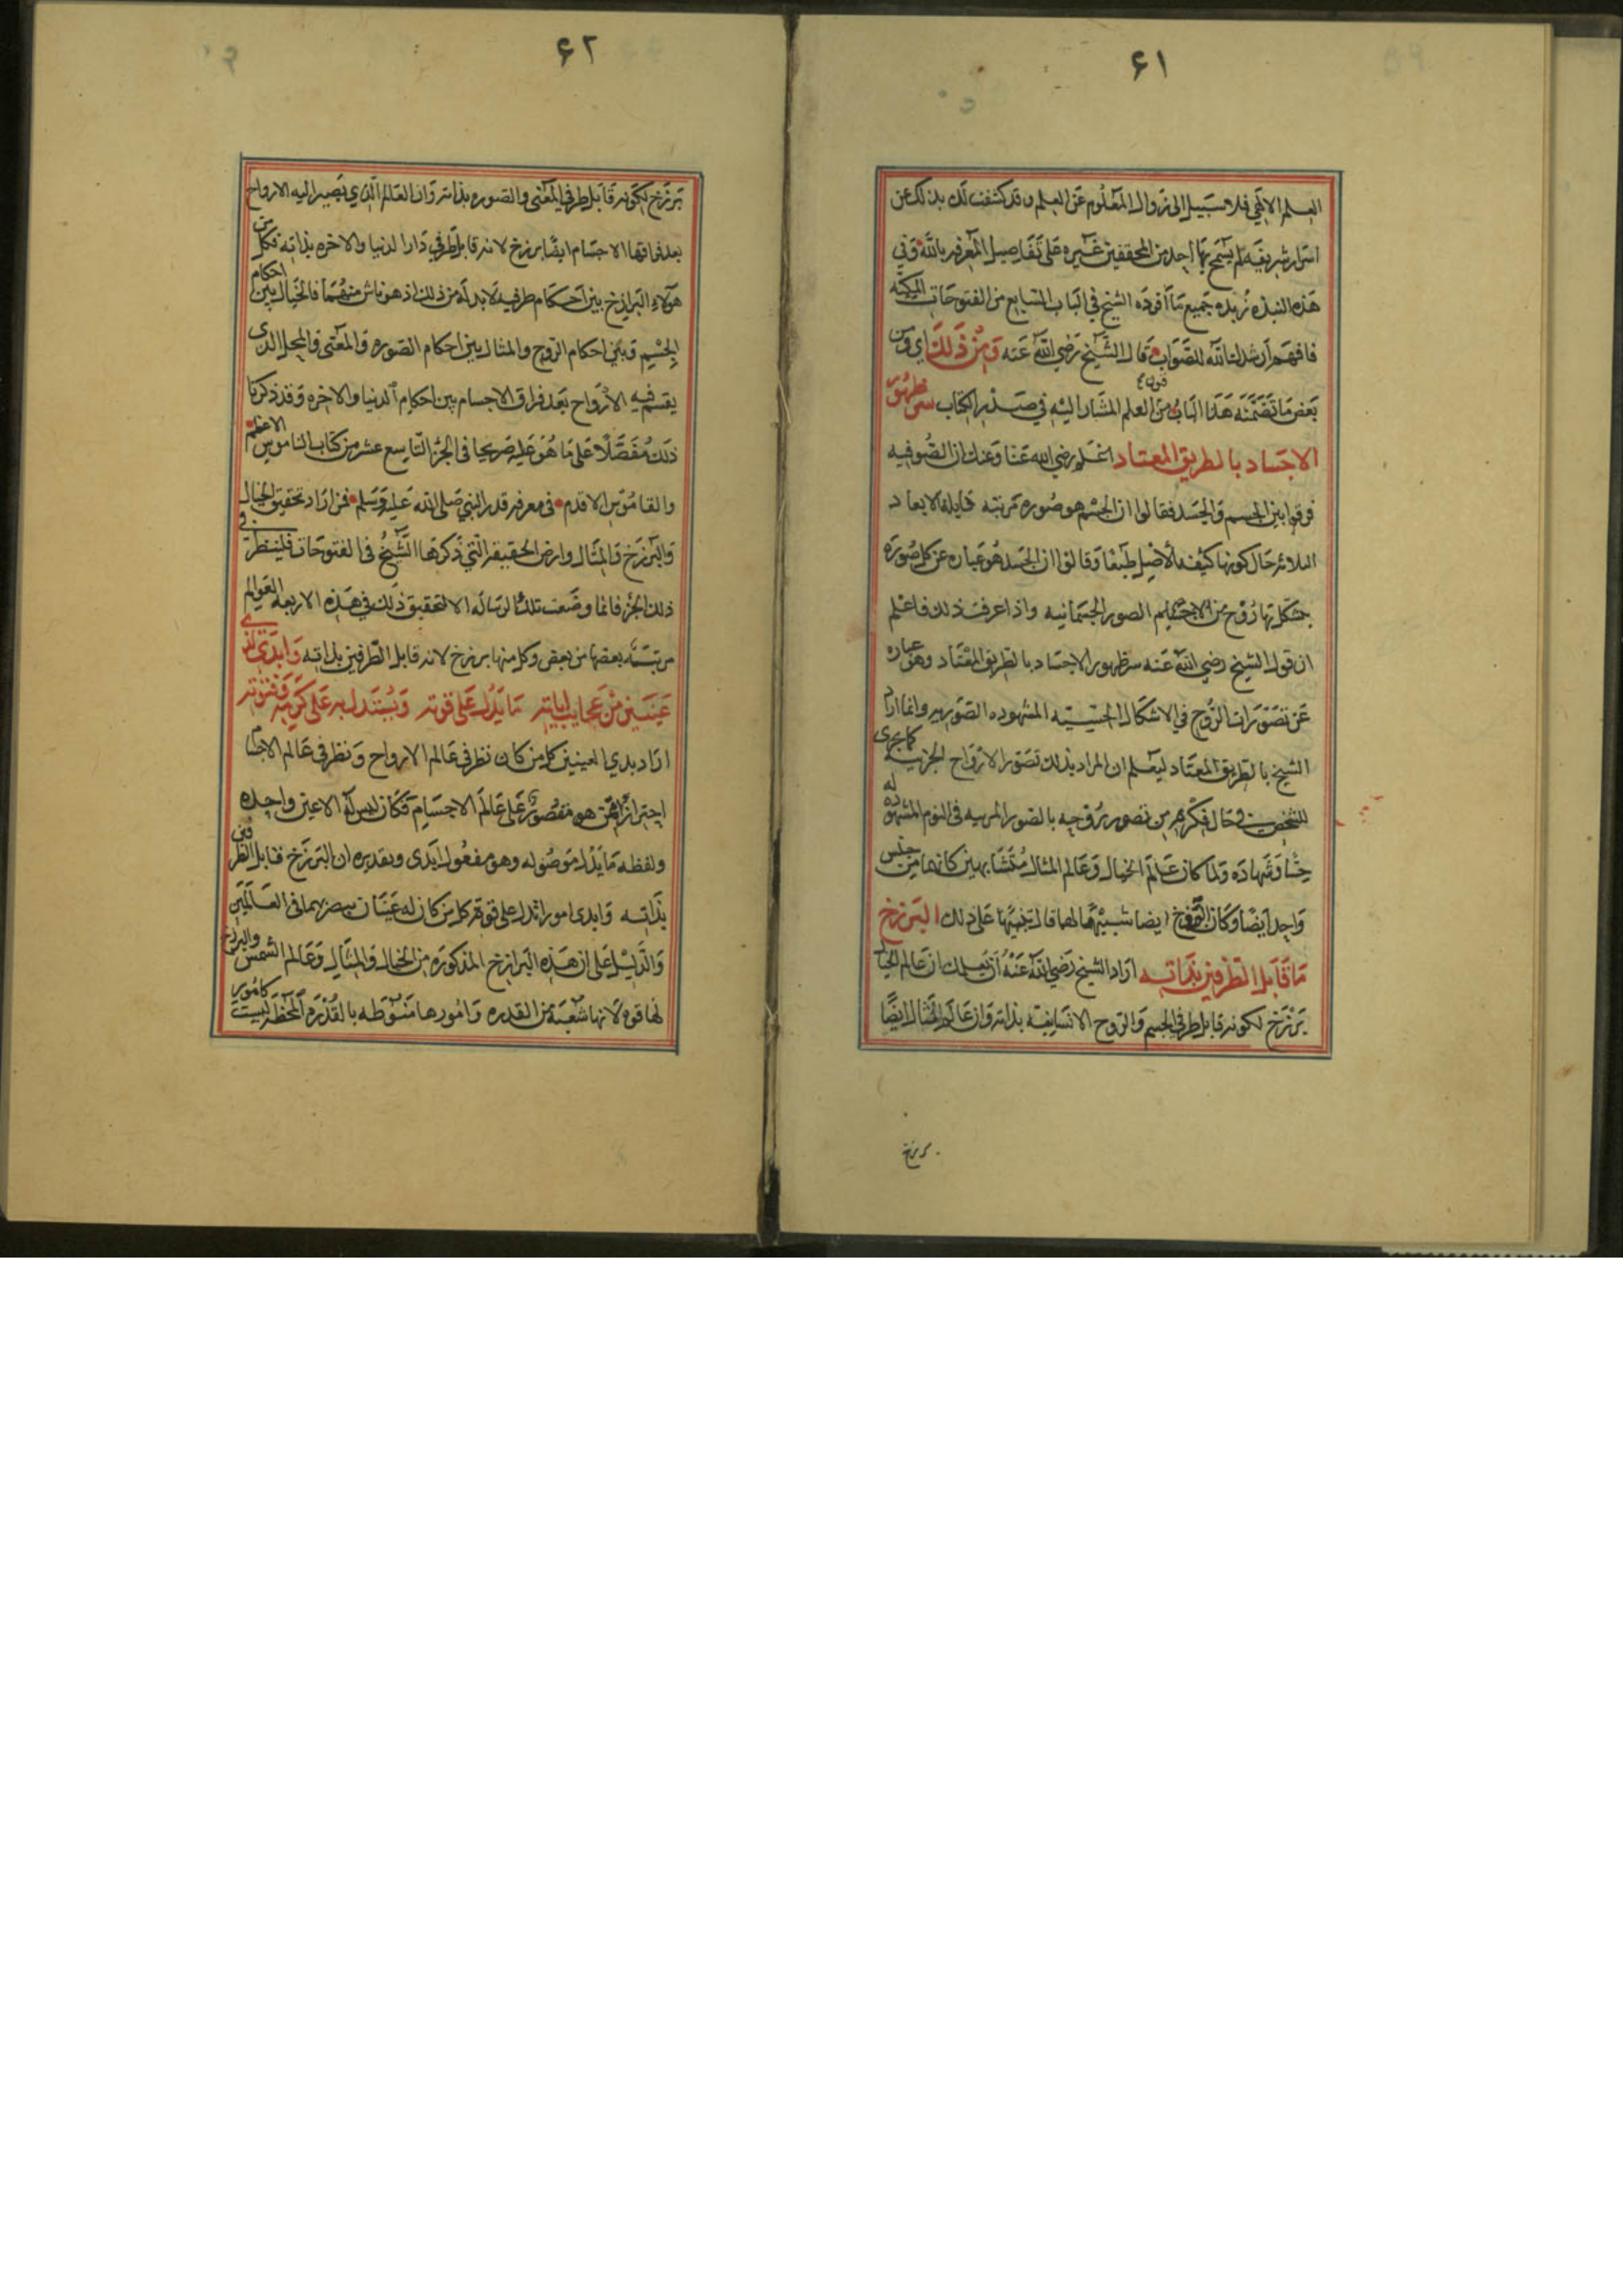 ٦١
العلم الالهي فلا سبيل الى زوال المعلوم عن العلم وقد كشفت لك بذلك عن
اسرار شريفه لم يسمح بها احد من المحققين غيره على تفاصيل المعرفه بالله وفي
هذه النبذه زبده جميع ما افرده الشيخ في الباب السابع من الفتوحات المكيه
فافهم ارشدك الله للصواب قال الشيخ رضي الله عنه ومن ذلك اي ومن
بعض ما تضمنه هذا الباب من العلم المشار اليه في صدر الكتاب سر ظهور
الاجساد بالطريق المعتاد اعلم رضي الله عنا وعنك ان الصوفيه
فرقوا بين الجسم والجسد فقالوا ان الجسم هو صوره مرتبه قابله لابعاد
الثلاثه حال كونها كثيفه الاصل طبعا وقالوا ان الجسد هو عباره عن كل صوره
يتشكل بها روح من الاجسام الصور الجسمانيه واذا عرفت ذلك فاعلم
ان قول الشيخ رضي الله عنه سر ظهور الاجساد بالطريق المعتاد وهو عباره
عن تصورات الروح في الاشكال الحسيه المشهوده الصوريه وانما اراد
الشيخ بالطريق المعتاد ليعلم ان المراد بذلك تصور الارواح الجزئيه كما يجرى
للشخص في حال فكره من تصور روحه بالصور المرييه في النوم المشهوده له
حسا وشهاده ولما كان عالم الخيال وعالم المثال متشابهين كانهما من جنس
واحد ايضا وكان البرزخ ايضا شبيها لهما قال تنبيها على ذلك البرزخ
ما قابل الطرفين بذاته اراد الشيخ رضي الله عنه ان يعلمك ان عالم الخيال
برزخ لكونه قابل طرفي الجسم والروح الانسانيه بذاته وان عالم المثال ايضا
برزخ
٦٢
برزخ لكونه قابل طرفي المعنى والصوره بذاته وان العالم الذي تصير اليه الارواح
بعد فراقها الاجسام ايضا برزخ لانه قابل طرفي دار الدنيا والاخره بذاته فكل من
هولاء البرازخ بين احكام طرفيه لا بد له من ذلك اذ هو ناش منهما فالخيال بين احكام
الجسم وبين احكام الروح والمثال بين احكام الصوره والمعنى والمحل الذى
يقسم فيه الارواح بعد فراق الاجسام بين احكام الدنيا والاخره وقد ذكرنا
ذلك مفصلا على ما هو عليه صريحا في الجزء التاسع عشر من كتاب الناموس الاعظم
والقاموس الاقدم في معرفه قدر النبي صلى الله عليه وسلم فمن اراد تحقيق الخيال
والبرزخ والمثال وارض الحقيقه التي ذكرها الشيخ في الفتوحات فلينظر في
ذلك الجزء فانما وضعت تلك الرساله الا لتحقيق ذلك في هذه الاربعه العوالم
مرتبته بعضها من بعض وكل منها برزخ لانه قابل الطرفين بذاته وابدى لذي
عينين من عجايب اياته ما يدل على قوته ويستدل به على كرمه وفتوته
اراد بذي العينين كل من كان نظر في عالم الارواح ونظر في عالم الاجسام
احترازا فمن هو مقصور على عالم الاجسام فكان ليس له الا عين واحده
ولفظه ما يدل موصوله وهو مفعول ابدى وتقديره ان البرزخ قابل الطرفين
بذاته وابدى امورا تدل على قوته كل من كان له عينان يبصر بهما في العالمين
والدليل على ان هذه البرازخ المذكوره من الخيال والمثال وعالم الشمس والبرازخ
لها قوه لانها شعبه من القدره وامورها منوطه بالقدره المحظه ليست كامور